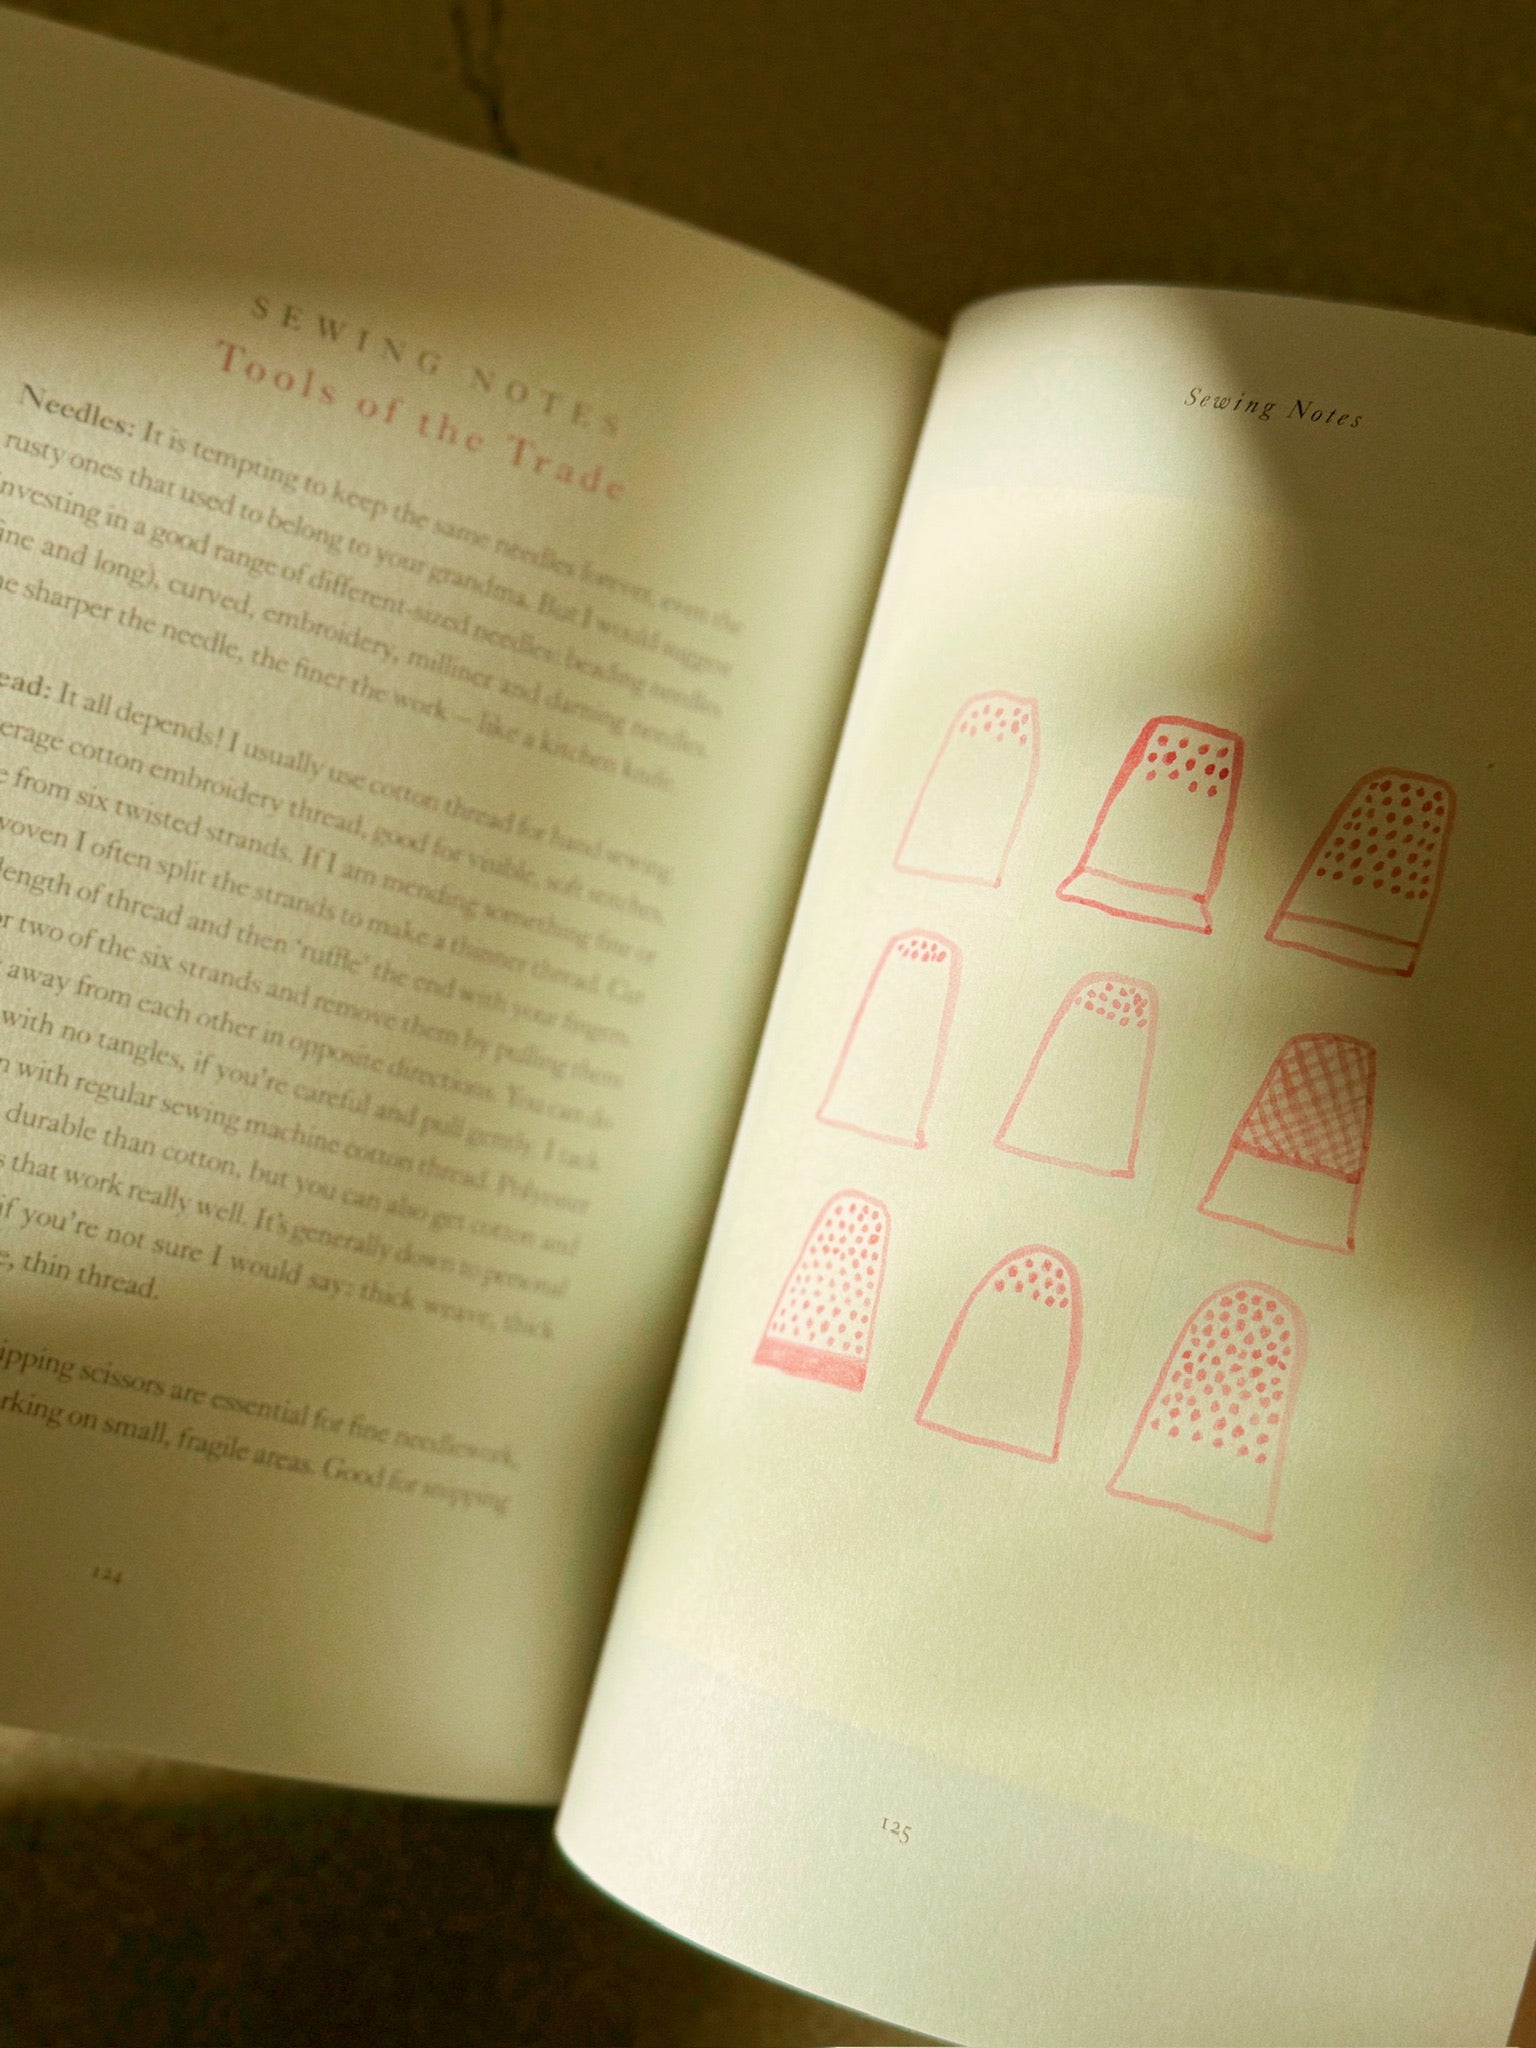 SEWING NOTES
Tools of the Trade
Needles: It is tempting to keep the same needles forever, even the
rusty ones that used to belong to your grandma. But I would suggest
nvesting in a good range of different-sized needles: beading needles
ine and long), curved, embroidery, milliner and darning needles.
he sharper the needle, the finer the work – like a kitchen knife.
ead: It all depends! I usually use cotton thread for hand sewing.
erage cotton embroidery thread, good for visible, soft stitches,
e from six twisted strands. If I am mending something fine or
woven I often split the strands to make a thinner thread. Cut
length of thread and then ‘ruffle’ the end with your fingers.
or two of the six strands and remove them by pulling them
away from each other in opposite directions. You can do
with no tangles, if you’re careful and pull gently. I tack
n with regular sewing machine cotton thread. Polyester
durable than cotton, but you can also get cotton and
s that work really well. It’s generally down to personal
if you’re not sure I would say: thick weave, thick
e, thin thread.
ipping scissors are essential for fine needlework,
rking on small, fragile areas. Good for snipping
124
Sewing Notes
125